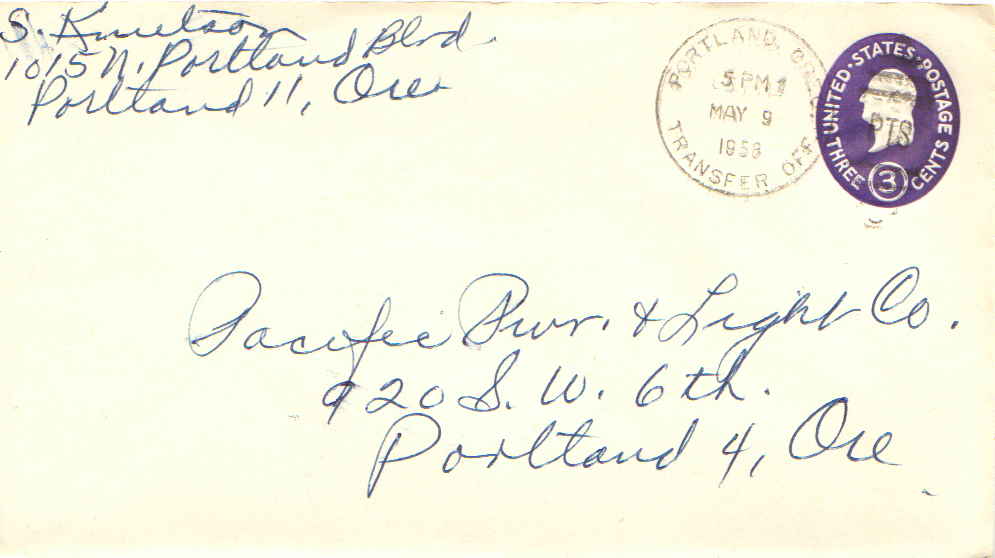 S. Knutson
1015 N. Portland Blvd.
Portland 11, Ore.
PORTLAND, ORE.
5 PM
MAY 9
1958
TRANSFER OFF.
UNITED·STATES·POSTAGE
THREE 3 CENTS
PTS
Pacific Pwr. & Light Co.
920 S. W. 6th.
Portland 4, Ore